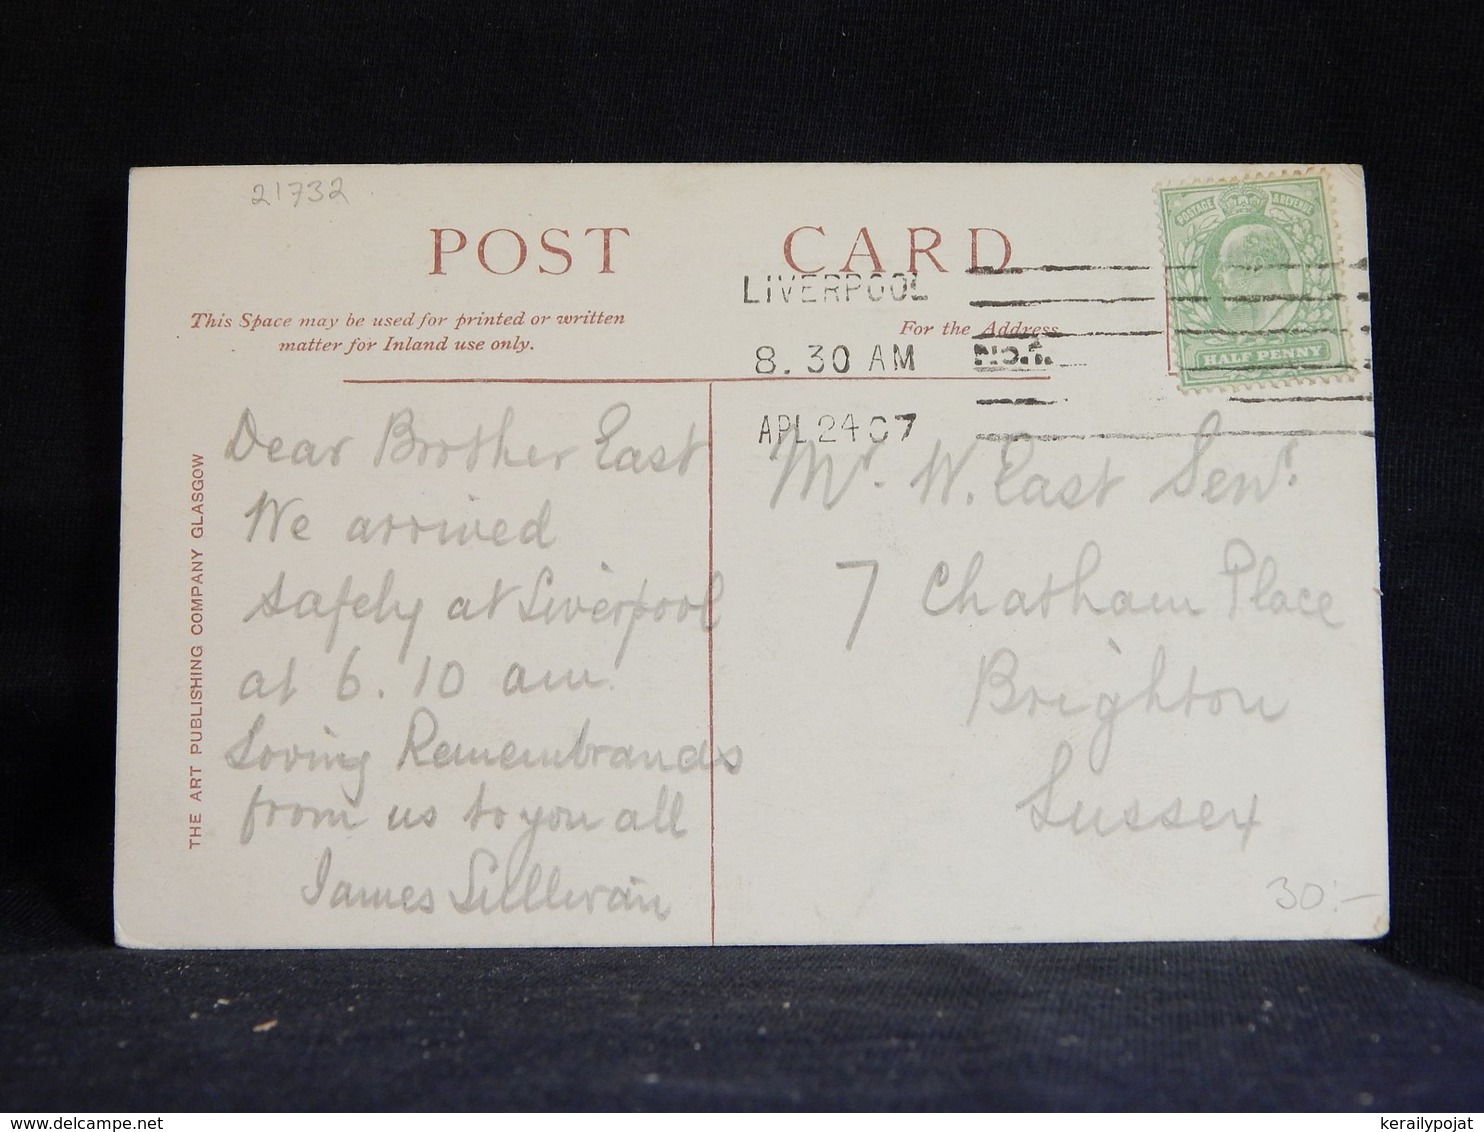 21732
POST CARD
This Space may be used for printed or written
matter for Inland use only.
For the Address
LIVERPOOL
8.30 AM
APL 24 07
POSTAGE & REVENUE
HALF PENNY
THE ART PUBLISHING COMPANY GLASGOW
Dear Brother East
We arrived
safely at Liverpool
at 6.10 am.
Loving Remembrances
from us to you all
James Sullivan
Mr. W. East Senr.
7 Chatham Place
Brighton
Sussex
30:-
kerailypojat